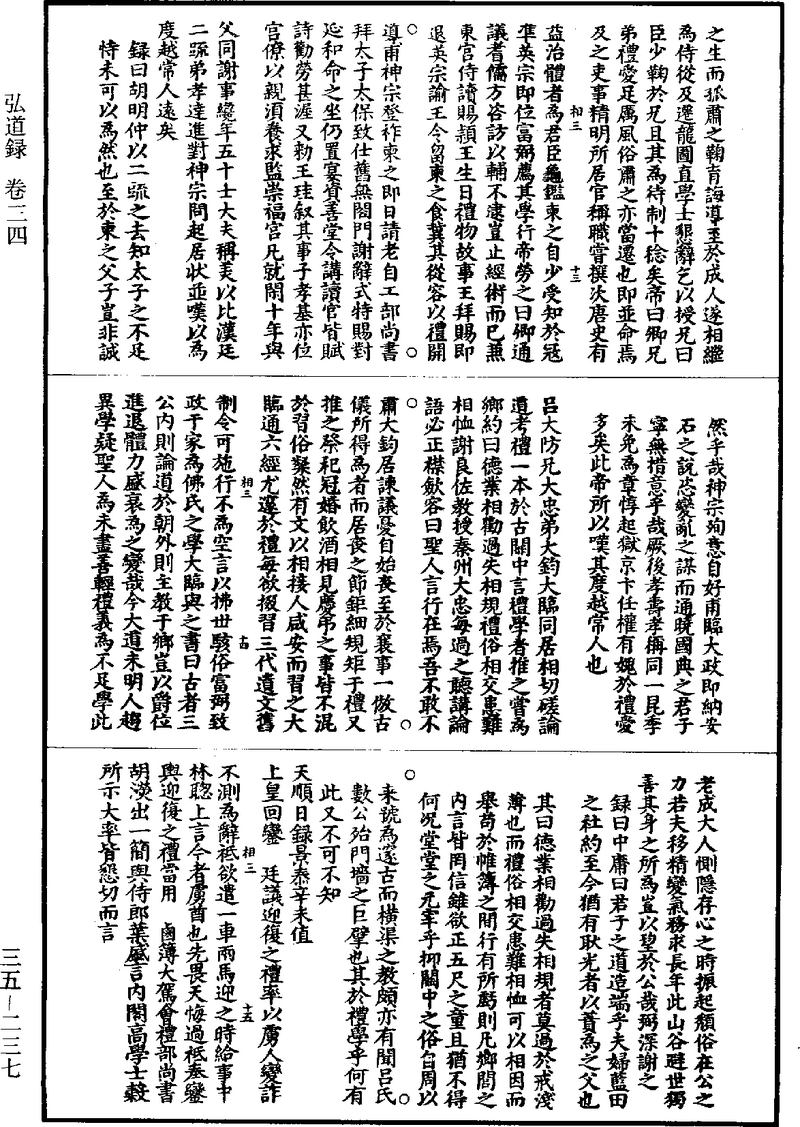 之生而孤肅之鞠育誨導至於成人遂相繼
為侍從及遷龍圖直學士懇辭乞以授兄曰
臣少鞠於兄且其為待制十稔矣帝曰卿兄
弟禮愛足厲風俗肅之亦當遷也即並命焉
及之吏事精明所居官稱職嘗撰次唐史有
相三
十三
益治體者為君臣龜鑑東之自少受知於冠
準英宗即位富弼薦其學行帝勞之曰卿通
議耆儒方咨訪以輔不逮豈止經術而已兼
東宮侍讀賜穎王生日禮物故事王拜賜即
退英宗諭王令留東之食冀其從容以禮開
導甫神宗登祚東之即日請老自工部尚書
拜太子太保致仕舊無閤門謝辭式特賜對
延和命之坐仍置宴資善堂令講讀官皆賦
詩勸勞甚渥又勑王珪叙其事子孝基亦位
官僚以親須養求監崇福宮凡就閒十年與
父同謝事纔年五十士大夫稱美以比漢廷
二疏弟孝逹進對神宗問起居狀並嘆以為
度越常人遠矣
錄曰胡明仲以二疏之去知太子之不足
恃未可以為然也至於東之父子豈非誠
然乎哉神宗殉意自好甫臨大政即納安
石之說恣變亂之謀而通曉國典之君子
寧無措意乎哉厥後孝壽孝稱同一昆季
未免為章惇起獄京卞任權有媿於禮愛
多矣此帝所以嘆其度越常人也
呂大防兄大忠弟大鈞大臨同居相切磋論
道考禮一本於古關中言禮學者推之嘗為
鄉約曰德業相勸過失相規禮俗相交患難
相恤謝良佐教授秦州大忠每過之聽講論
語必正襟斂容曰聖人言行在焉吾不敢不
肅大鈞居諫議憂自始喪至於襄事一倣古
儀所得為者而居喪之節鉅細規矩于禮又
推之祭祀冠婚飲酒相見慶弔之事皆不混
於習俗粲然有文以相接人咸安而習之大
臨通六經尤邃於禮每欲掇習三代遺文舊
相三
十四
制令可施行不為空言以拂世駭俗富弼致
政于家為佛氏之學大臨與之書曰古者三
公內則論道於朝外則主教于鄉豈以爵位
進退體力盛衰為之變哉今大道未明人趨
異學疑聖人為未盡善輕禮義為不足學此
老成大人惻隱存心之時振起頹俗在公之
力若夫移精變氣務求長年此山谷避世獨
善其身之所為豈以望於公哉弼深謝之
錄曰中庸曰君子之道造端乎夫婦藍田
之社約至今猶有耿光者以蕡為之父也
其曰德業相勸過失相規者莫過於戒淺
薄也而禮俗相交患難相恤可以相因而
舉苟於帷簿之間行有所虧則凡鄉閭之
內言皆罔信雖欲正五尺之童且猶不得
何况堂堂之元宰乎抑關中之俗自周以
来號為邃古而橫渠之教頗亦有聞呂氏
數公殆門墻之巨擘也其於禮學乎何有
此又不可不知
天順日錄景泰辛未值
上皇回鑾 廷議迎復之禮率以虜人變詐
相三
十五
不測為辭祗欲遣一車兩馬迎之時給事中
林聰上言今者虜酋也先畏天悔過祗奉鑾
輿迎復之禮當用 鹵簿大駕會禮部尚書
胡濙出一簡與侍郎葉盛言內閣高學士穀
所示大率皆懇切而言
弘道録 卷三四
三五—二三七